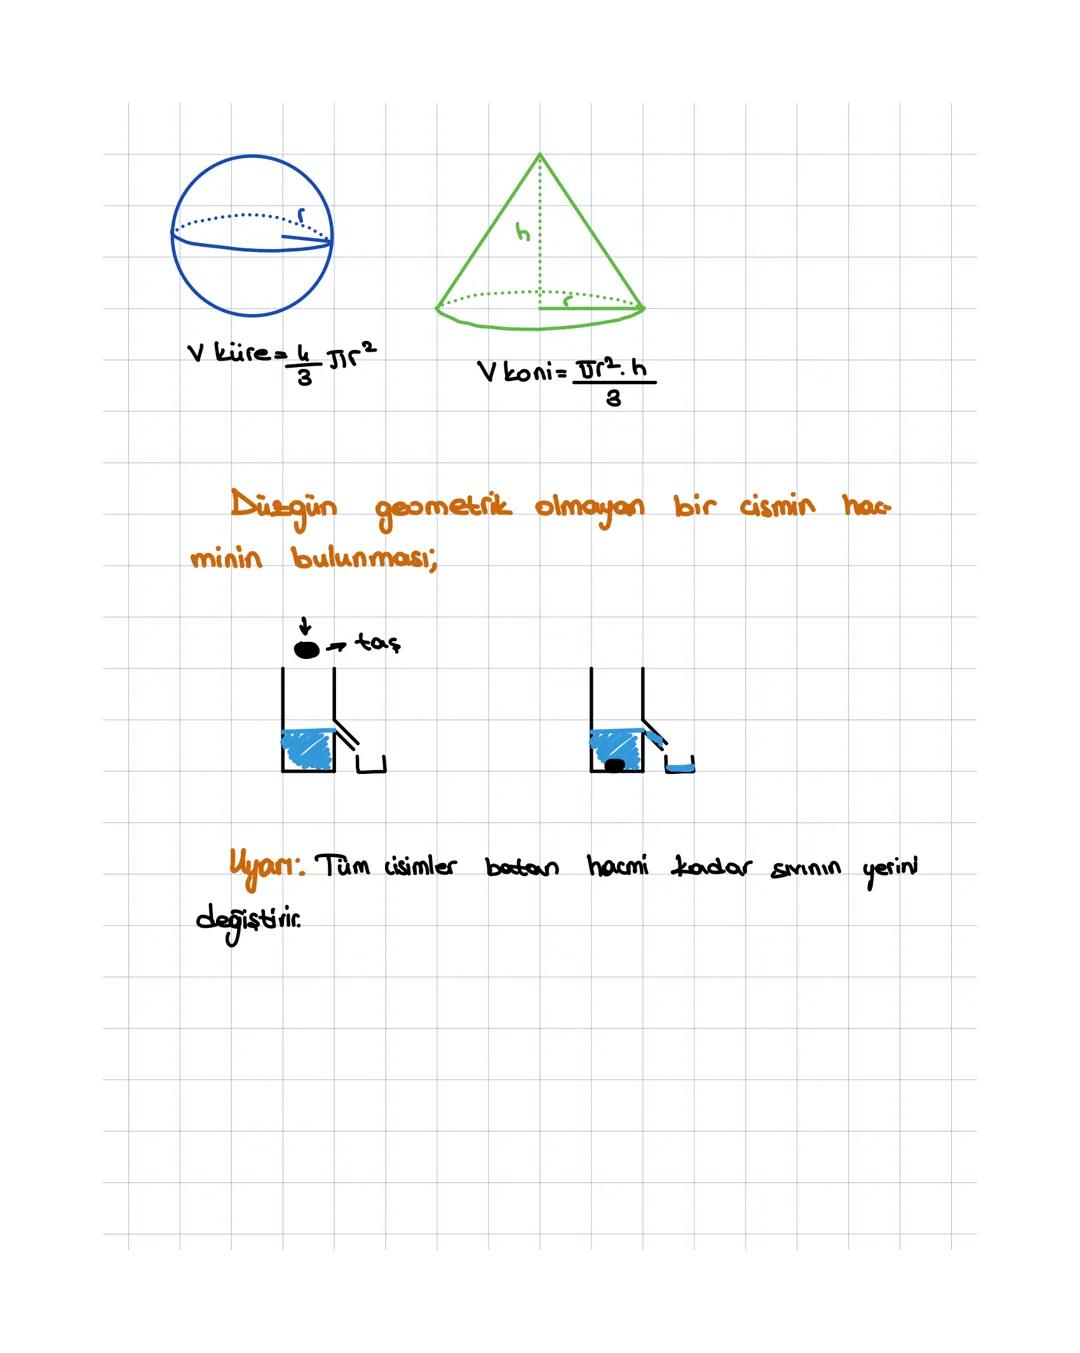 r
h
r
V küre = 4/3 πr²
V koni = πr².h/3
Düzgün geometrik olmayan bir cismin hac-
minin bulunması;
↓
→ taş
Uyarı: Tüm cisimler batan hacmi kadar sıvının yerini
değiştirir.